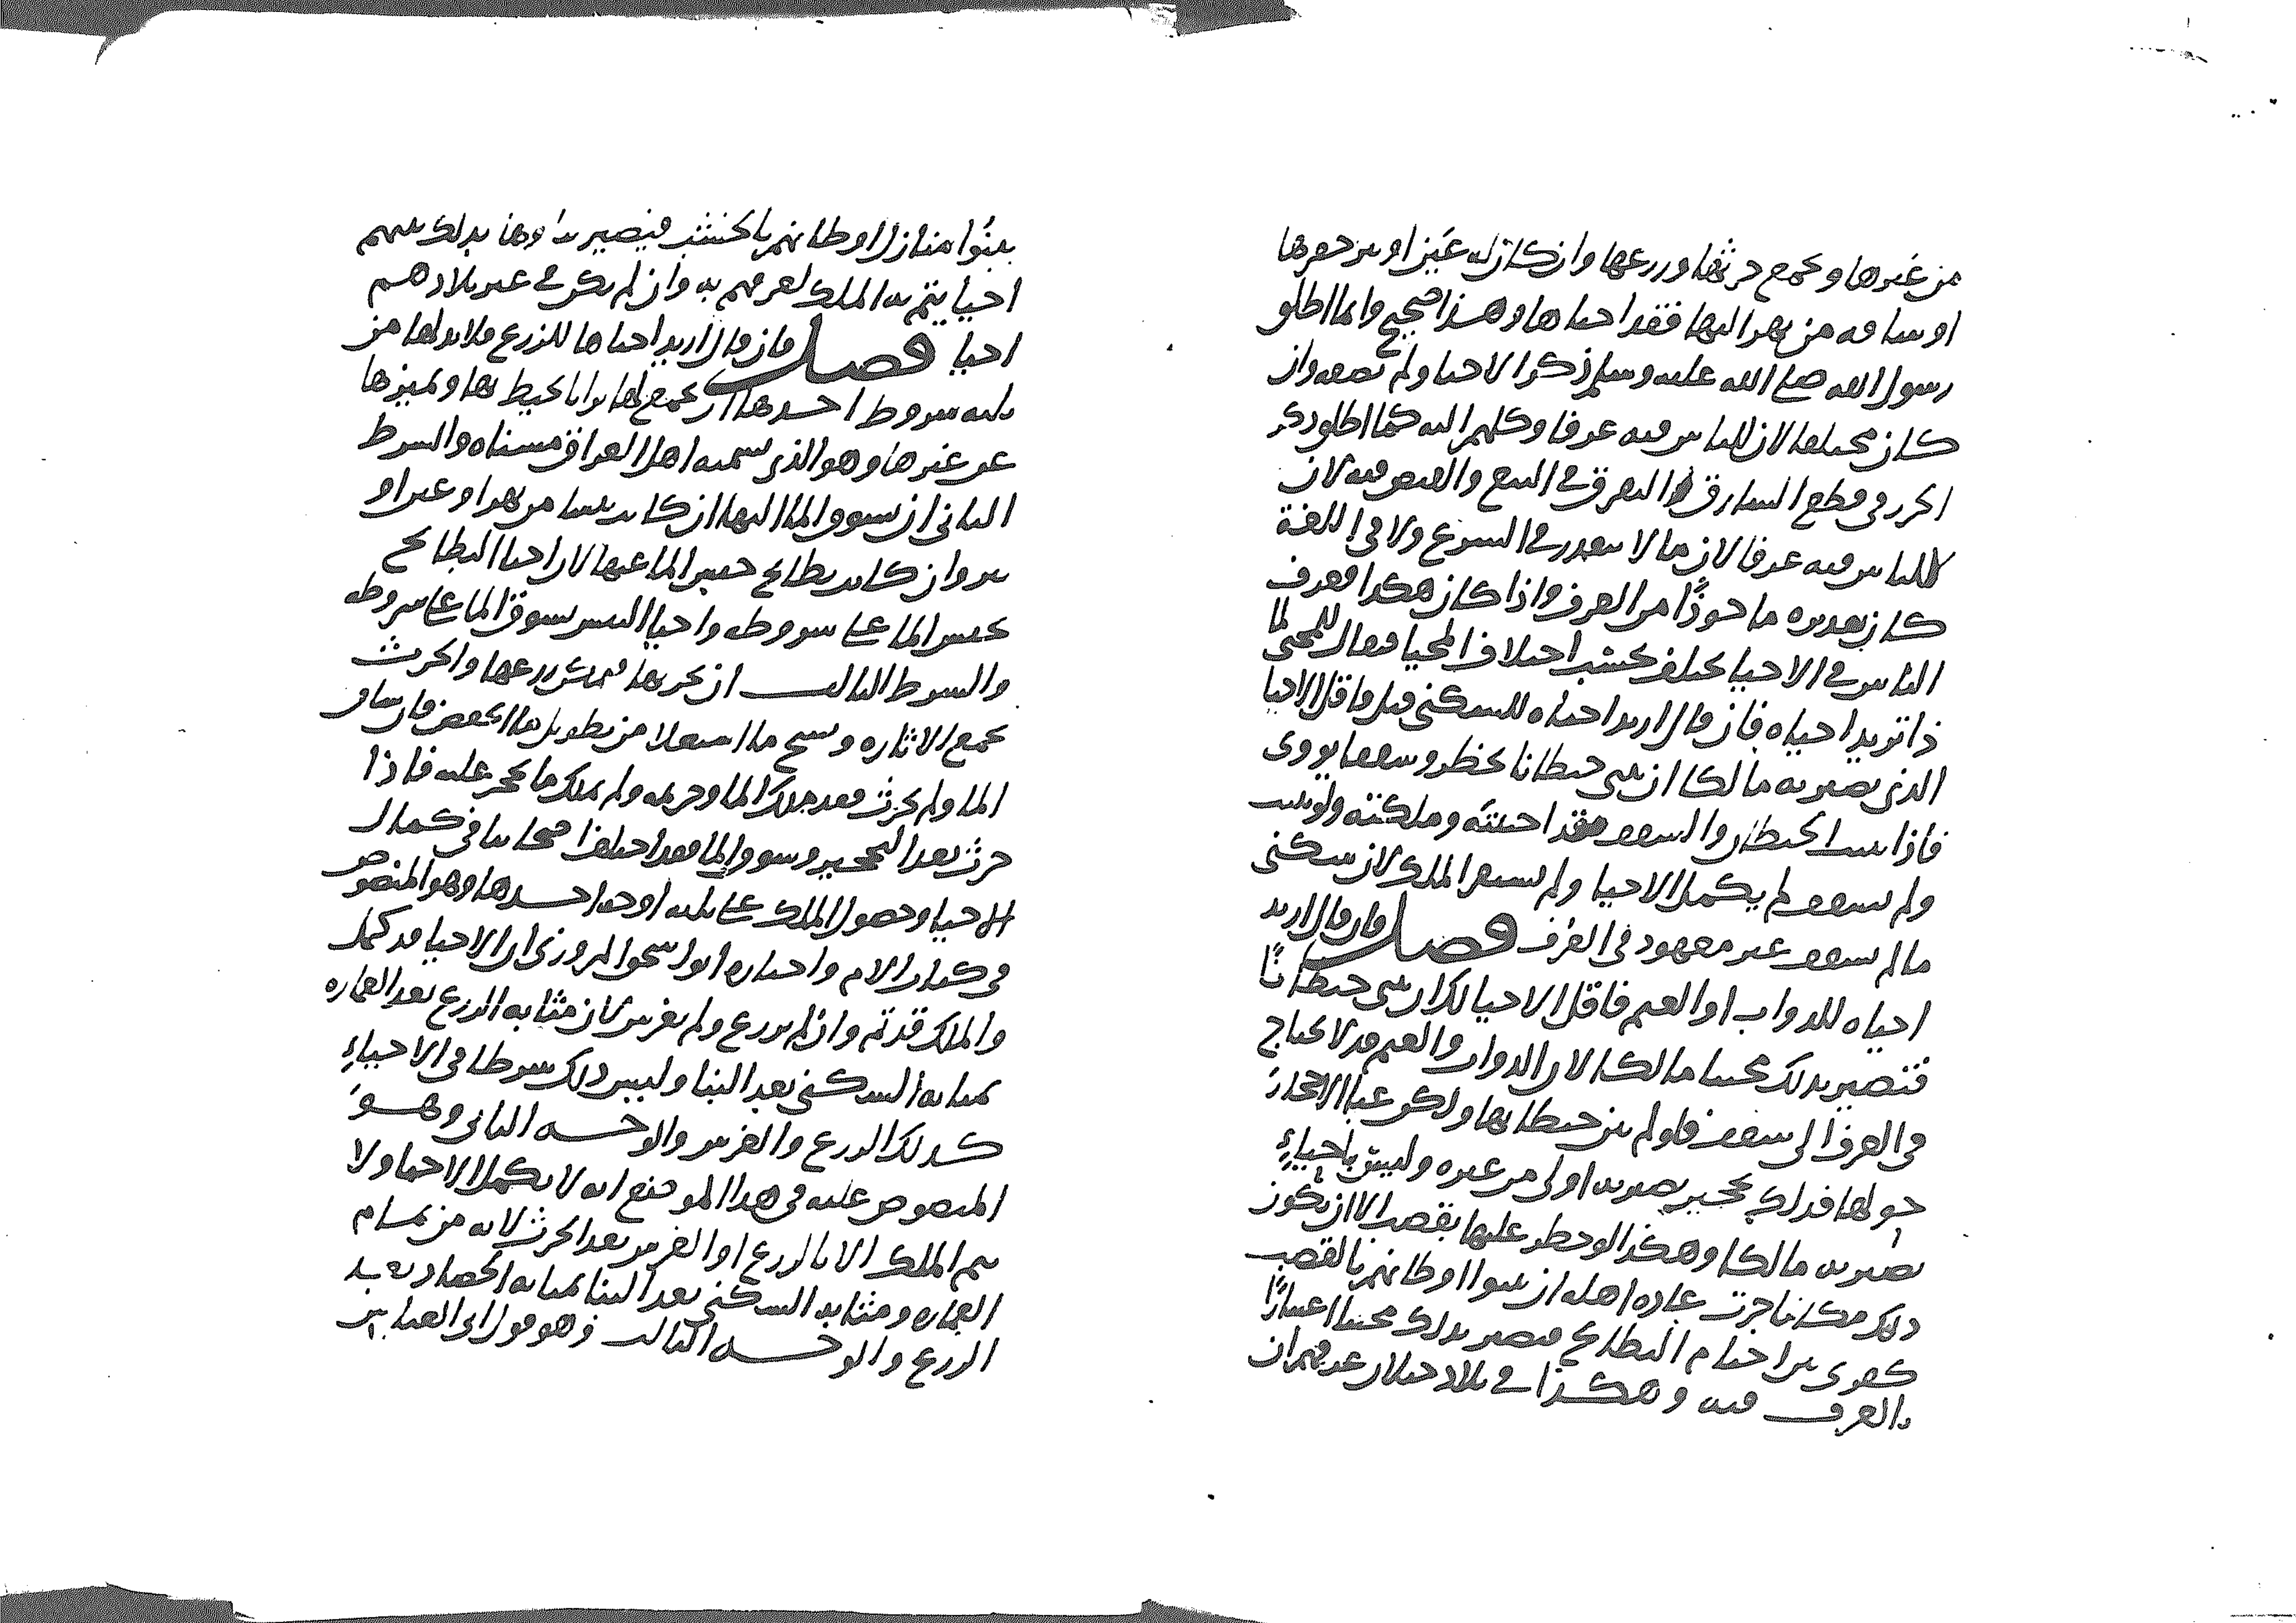 من غيرها ويجمع حرثها وزرعها وان كان له عين او بير حفرها
او ساقه من نهر اليها فقد احياها وهذا صحيح وانما اطلق
رسول الله صلى الله عليه وسلم ذكر الاحيا ولم يصفه وان
كان مختلفا لان للناس فيه عرفا وكلهم اليه كما اطلق ذكر
الحرز في قطع السارق والتفرق في البيع والقبض فيه لان
للناس فيه عرفا لان ما لا يتقدر في الشرع ولا في اللغة
كان تقديره ماخوذا من العرف واذا كان هكذا فعرف
الناس في الاحيا يختلف بحسب اختلاف المحيا فيقال للمحيي لما
ذا تريد احياه فان قال اريد احياه للسكنى قيل فاقل الاحيا
الذي تصير به مالكا ان تبني حيطانا بحظر وسقفا يووى
فاذا بنيت الحيطان والسقف فقد احييته وملكته ولو بنيت
ولم تسقف لم يكمل الاحيا ولم يستقر الملك لان سكنى
ما لم يسقف غير معهود في العرف فصل فان قال اريد
احياه للدواب او الغنم فاقل الاحيا لذلك ان تبني حيطانا
فتصير بذلك محييا مالكا لان الدواب والغنم قد لا تحتاج
في العرف الى سقف فلو لم يبن حيطانها ولكن عبا الاحجار
حولها فذلك تحجير يصير به اولى من غيره وليس باحياء
يصير به مالكا وهكذا لو حظر عليها بقصب الا ان يكون
ذلك مكانا جرت عادة اهله ان يبنوا اوطانهم بالقصب
كعرى بين اجام البطايح فيصير بذلك محييا اعتبارا
بالعرف فيه وهكذا في بلاد جيلان عرفهم ان
يبنوا منازل اوطانهم بالخشب فيصير بناوها بذلك بينهم
احيا يتم به الملك لعرفهم به وان لم يكن في غير بلادهم
احيا فصل فان قال اريد احياها للزرع فلا بد لها من
ثلثه شروط احدها ان يجمع لها ترابا يحيط بها ويميزها
عن غيرها وهو الذي يسميه اهل العراق مسناه والشرط
الثاني ان يسوق الما اليها ان كانت يبسا من نهر او عين او
بير وان كانت بطايح حبس الما عنها لان احيا البطايح
بحبس الما على شروطه واحيا اليبس بسوق الما على شروطه
والشرط الثالث ان يحرثها ليمكن زرعها والحرث
يجمع الاثارة وتسيح ما استعلا من تطويل ما انخفض فان ساق
الما ولم يحرث فقد ملك الما وحريمه ولم يملك ما تحجر عليه فاذا
حرث بعد التحجير وسوق الما فقد اختلف اصحابنا في كمال
الاحيا وحصول الملك على ثلثه اوجه احدها وهو المنصوص
في كتاب الام واختاره ابو اسحق المروزي ان الاحيا قد كمل
والملك قد تم وان لم يزرع ولم يغرس لان مثابه الزرع بعد العماره
بمثابه السكنى بعد البنا وليس ذلك شرطا في الاحياء
كذلك الزرع والغرس والوجه الثاني وهو
المنصوص عليه في هذا الموضع انه لا يكمل الاحيا ولا
يتم الملك الا بالزرع او الغرس بعد الحرث لانه من تمام
العماره ومثابه السكنى بعد البنا بمثابه الحصاد بعد
الزرع والوجه الثالث وهو قول ابي العباس